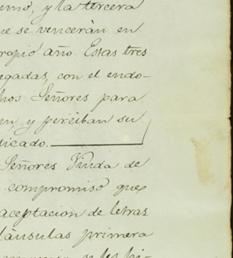 emo, y la tercera
ue se vencerán en
ropio año. Estas tres
egadas, con el endo-
hos Señores para
en, y perciban su
dicado.
Señores Viuda de
compromiso que
aceptacion de letras
láusulas primera